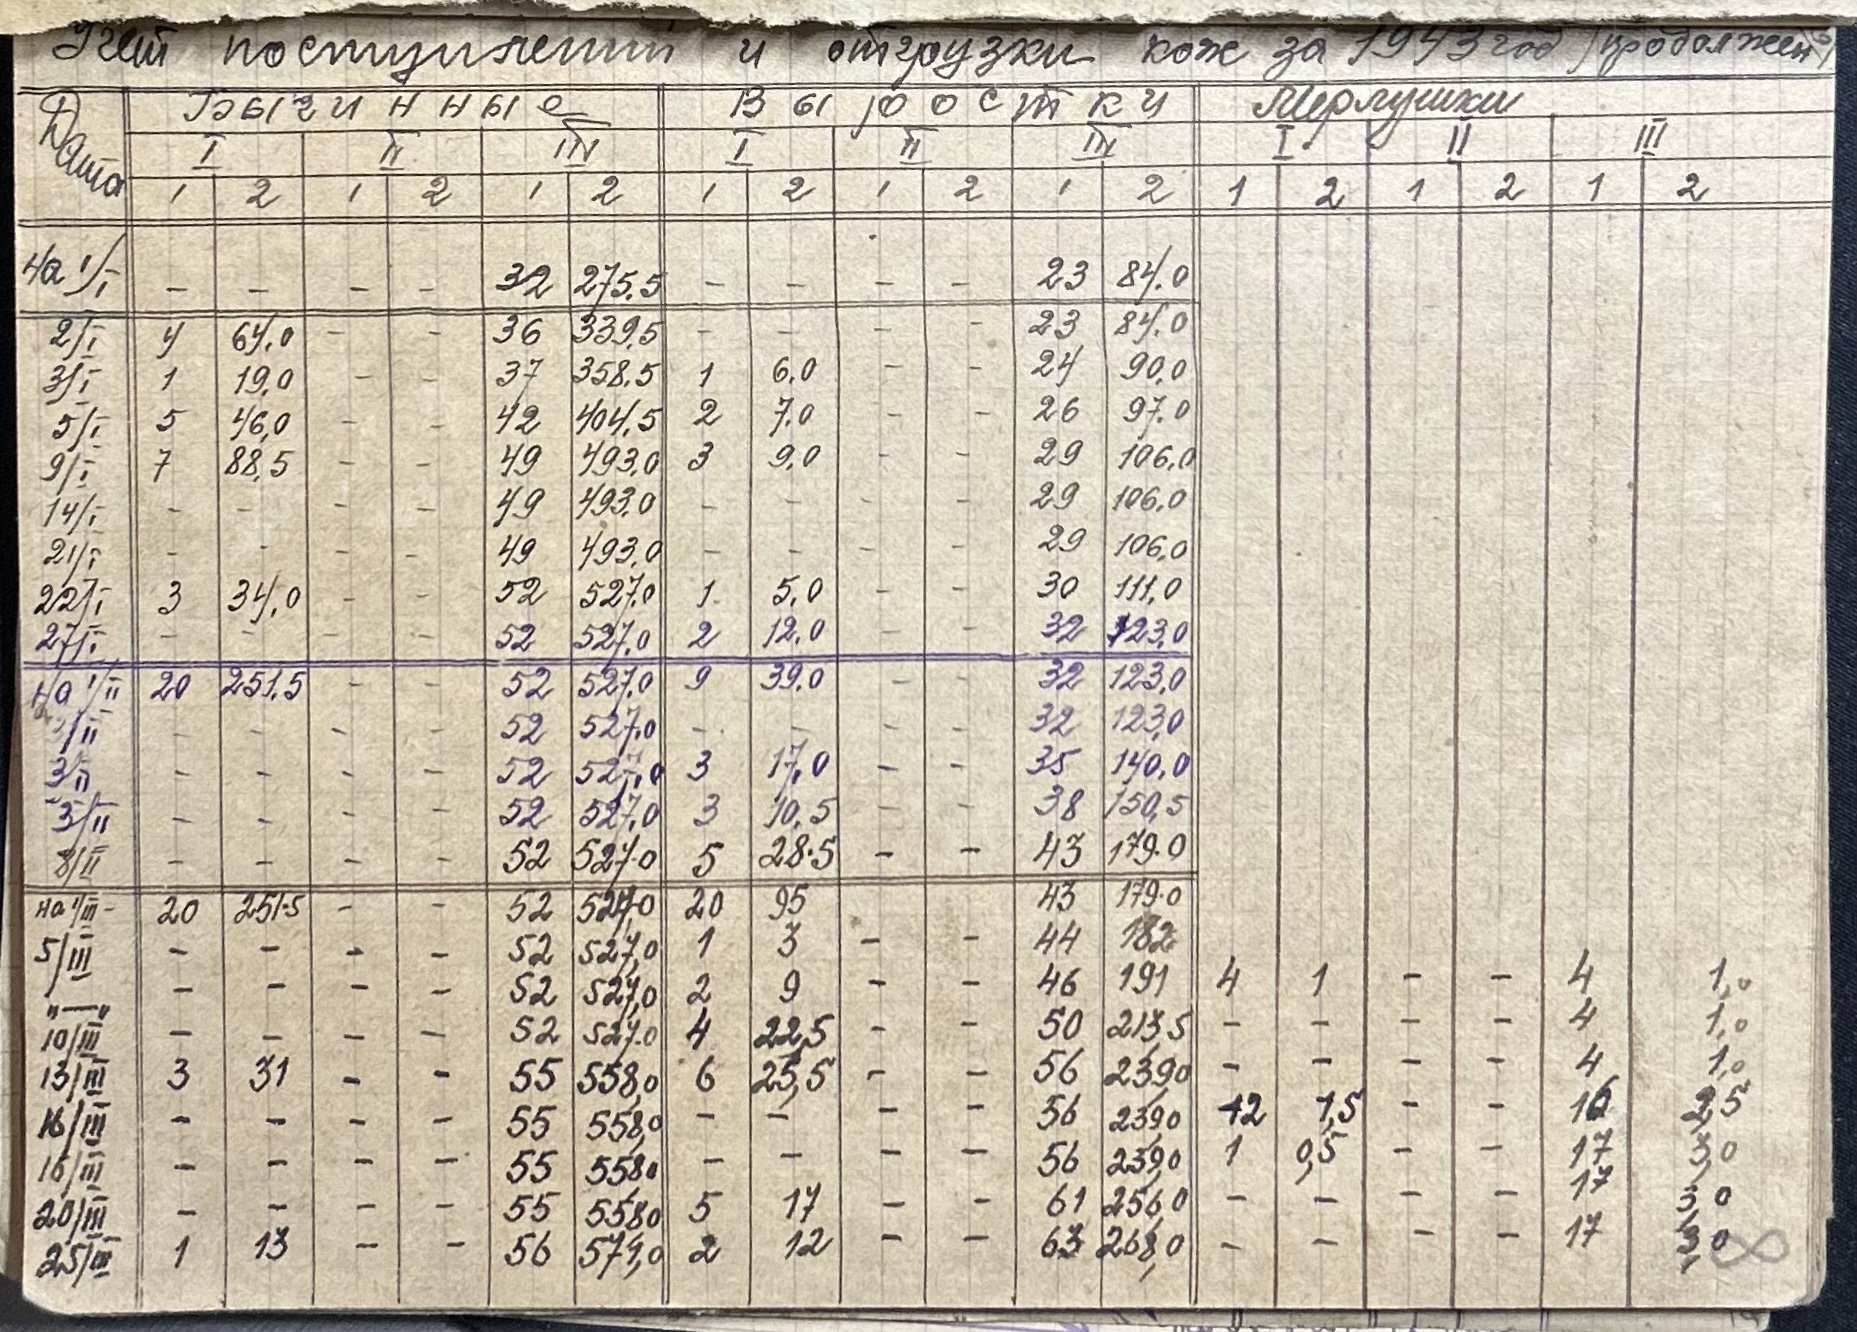 Учет поступлений и отгрузки кож за 1943 год (продолжен
Дата Бычинные Выростки Мерлушки
I II III I II III I II III
1 2 1 2 1 2 1 2 1 2 1 2 1 2 1 2 1 2
На 1/I - - - - 32 275.5 - - - - 23 84.0
2/I 4 64.0 - - 36 339.5 - - - - 23 84.0
3/I 1 19,0 - - 37 358.5 1 6.0 - - 24 90,0
5/I 5 46,0 - - 42 404.5 2 7.0 - - 26 97.0
9/I 7 88,5 - - 49 493,0 3 9,0 - - 29 106,0
14/I - - - - 49 493.0 - - - - 29 106,0
21/I - - - - 49 493,0 - - - - 29 106,0
22/I 3 34,0 - - 52 527,0 1 5,0 - - 30 111,0
27/I - - - - 52 527,0 2 12,0 - - 32 123,0
На 1/II 20 251,5 - - 52 527,0 9 39.0 - - 32 123,0
1/II - - - - 52 527.0 - - - - 32 123,0
3/II - - - - 52 527,0 3 17,0 - - 35 140,0
5/II - - - - 52 527,0 3 10,5 - - 38 150,5
8/II - - - - 52 527.0 5 28.5 - - 43 179.0
на 1/III 20 251.5 - - 52 527,0 20 95 43 179.0
5/III - - - - 52 527,0 1 3 - - 44 182
"—" - - - - 52 527,0 2 9 - - 46 191 4 1 - - 4 1,0
10/III - - - - 52 527.0 4 22,5 - - 50 213,5 - - - - 4 1,0
13/III 3 31 - - 55 558,0 6 25,5 - - 56 239,0 - - - - 4 1,0
16/III - - - - 55 558,0 - - - - 56 239,0 12 1,5 - - 16 2,5
16/III - - - - 55 558,0 - - - - 56 239,0 1 0,5 - - 17 3,0
20/III - - - - 55 558,0 5 17 - - 61 256,0 - - - - 17 3,0
25/III 1 13 - - 56 571,0 2 12 - - 63 268,0 - - - - 17 3,0